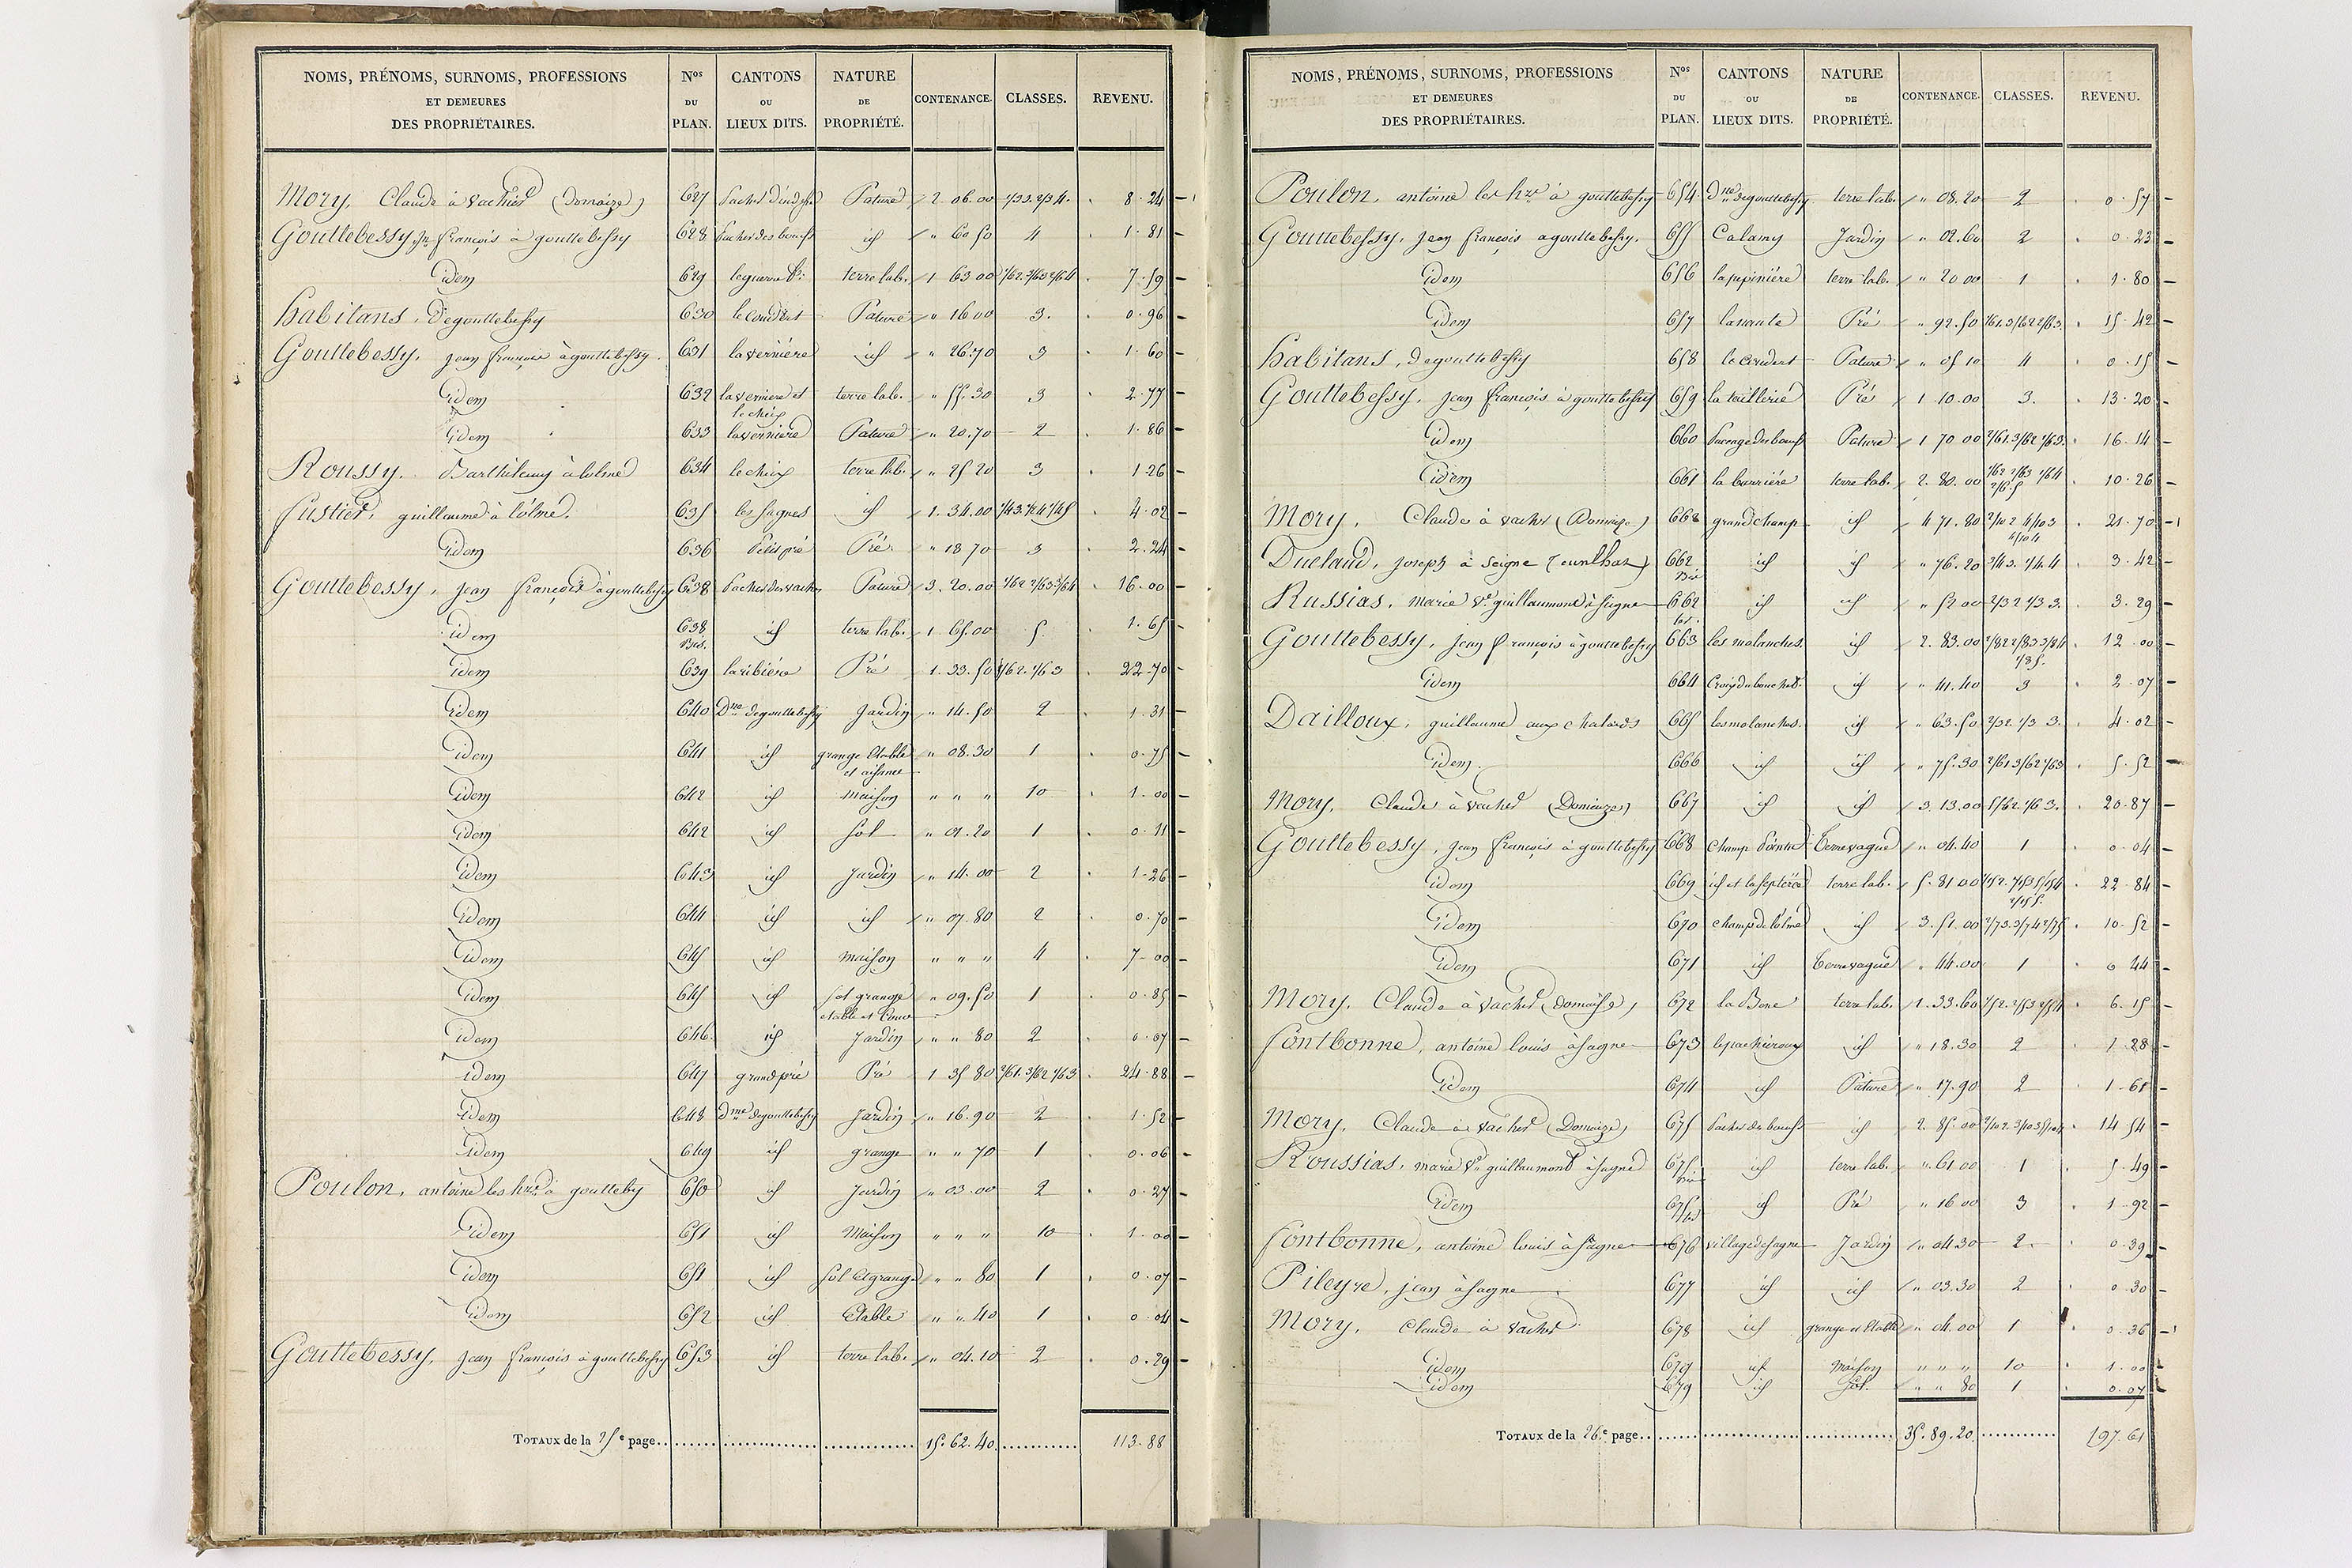 NOMS, PRÉNOMS, SURNOMS, PROFESSIONS ET DEMEURES DES PROPRIÉTAIRES. Nos DU PLAN. CANTONS OU LIEUX DITS. NATURE DE PROPRIÉTÉ. CONTENANCE. CLASSES. REVENU.
Mory, Claude à vacher (Domaize) 627 Pature 2. 06. 00 1/3 3. 2/3 4. 8. 24
Gouttebessy, jn françois à gouttebessy 628 pacher des boeufs id " 60 50 4 1. 81
Idem 629 terre lab. 1 63 00 7. 59
habitans, degouttebessy 630 le coudert Pature " 16 00 3. 0. 96
Gouttebessy, jean françois à gouttebessy 631 la vernière id " 26. 70 3 1. 60
Idem 632 la verniere et le cheix terre lab. " 55. 30 3 2. 77
Idem 633 la verniere Pature " 20. 70 2 1. 86
Roussy, Barthélemy à lolme 634 le cheix terre lab. " 25 20 3 1 26
fustier, guillaume à lolme. 635 les sagnes id 1. 34. 00 4. 02
Idem 636 Petit pré Pré " 18 70 3 2. 24
Gouttebessy, jean françois à gouttebessy 638 pacher des vaches Pature 3. 20. 00 1/6 2 2/6 3 3/6 4 16. 00
Idem 638 Bis. id terre lab. 1. 65. 00 5. 1. 65
Idem 639 la ribière Pré 1. 33. 50 5/6 2. 1/6 3 22. 70
Idem 640 Dne degouttebessy jardin " 14. 50 2 1. 31
Idem 641 id grange Etable et aisances " 08. 30 1 0. 75
Idem 642 id maison " " " 10 1. 00
Idem 642 id sol " 01. 20 1 0. 11
Idem 643 id Jardin " 14. 00 2 1. 26
Idem 644 id id " 07. 80 2 0. 70
Idem 645 id maison " " " 4 7. 00
Idem 645 id sol grange etable et Cour " 09. 50 1 0. 85
Idem 646. id Jardin " " 80 2 0. 07
idem 647 grand pré Pré 1 35 80 2/6 1. 3/6 2 1/6 3 24. 88
Idem 648 Dne degouttebessy Jardin " 16. 90 2 1. 52
Idem 649 id grange " " 70 1 0. 06
Poulon, antoine les hrs à goutteby 650 id Jardin " 03. 00 2 0. 27
Idem 651 id Maison " " " 10 1. 00
Idem 651 id sol et grange " " 80 1 0. 07
Idem 652 id Etable " " 40 1 0. 04
Gouttebessy, jean françois à gouttebessy 653 id terre lab. " 04. 10 2 0. 29
TOTAUX de la 25e page 15. 62. 40. 113. 88
NOMS, PRÉNOMS, SURNOMS, PROFESSIONS ET DEMEURES DES PROPRIÉTAIRES. Nos DU PLAN. CANTONS OU LIEUX DITS. NATURE DE PROPRIÉTÉ. CONTENANCE. CLASSES. REVENU.
Poulon, antoine les hrs à gouttebessy 654 Dne degouttebessy terre lab. " 08. 20 2 0. 57
Gouttebessy, jean françois agouttebessy. 655 Calamy Jardin " 02. 60 2 0. 23
Idem 656 la pepinière terre lab. " 20 00 1 1. 80
Idem 657 Pré " 92. 50 1/6 1. 3/6 2 2/6 3. 15. 42
habitans, degouttebessy 658 le coudert Pature " 05 10 4 0. 15
Gouttebessy, jean françois à gouttebessy 659 la taillerie Pré 1 10. 00 3. 13. 20
Idem 660 Pature 1 70 00 2/6 1. 3/6 2 1/6 3. 16. 14
Idem 661 la barrière terre lab. 2. 80. 00 1/6 2 2/6 3 1/6 4 2/6. 5 10. 26
Mory, Claude à vacher (Domaize) 662 grand champ id 4 71. 80 2/10 2 4/10 3 4/10 4 21. 70
Ducland, joseph à seigne (cunlhat) 662 Bis id id " 76. 20 3/4 3. 1/4 4 3. 42
Russias, marie Ve guillaumond à signe 662 ter. id id " 52 00 2/3 2 1/3 3. 3. 29
Gouttebessy, jean françois à gouttebessy 663 les molanches id 2. 83. 00 2/8 2 2/8 3 3/8 4 1/8 5. 12. 00
Idem 664 id " 41. 40 3 2. 07
Dailloux, guillaume aux chalards 665 les molanches. id " 63. 50 2/3 2. 1/3 3. 4. 02
Idem 666 id id " 75. 30 2/6 1 3/6 2 1/6 3 5. 52
Mory, Claude à vacher (Domaize) 667 id id 3. 13. 00 5/6 2. 1/6 3. 20. 87
Gouttebessy, jean françois à gouttebessy 668 Terre vague " 04. 40 1 0. 04
Idem 669 id et la septerée terre lab. 5. 81 00 22. 84
Idem 670 champ de lolme id 3. 51. 00 2/7 3. 3/7 4 2/7 5 10. 52
Idem 671 id Terre vague " 44. 00 1 0 44
Mory, Claude à vacher (domaise) 672 terre lab. 1. 33. 60 6. 15
fontbonne, antoine louis à sagne 673 id " 18. 30 2 1. 28
Idem 674 id Pature " 17. 90 2 1. 61
Mory, Claude à vacher (Domaize) 675 pacher des boeufs id 2. 85. 00 14 54
Roussias, marie Ve guillaumont à sagne 675. Bis id terre lab. " 61 00 1 5. 49
Idem 675 ter id Pré " 16 00 3 1. 92
fontbonne, antoine louis à sagne 676 village de sagne Jardin " 04 30 2. 0. 39
Pileyre, jean à sagne 677 id id " 03. 30 2 0. 30
Mory, Claude à vacher 678 id grange et Etable " 04. 00 1 0. 36
Idem 679 id Maison " " " 10 1. 00
Idem 679 id sol. " " 80 1 0. 07
TOTAUX de la 26e page 35. 89. 20. 197. 61